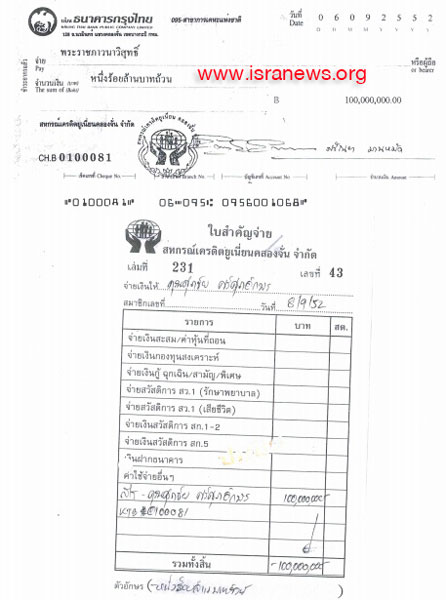 ธนาคารกรุงไทย
095-สาขาการเคหะแห่งชาติ
วันที่ Date 06092552
D D M M Y Y Y Y
KRUNG THAI BANK PUBLIC COMPANY LIMITED
จ่าย Pay พระราชภาวนาวิสุทธิ์ หรือผู้ถือ or bearer
www.isranews.org
จำนวนเงิน (บาท) The sum of (Baht) หนึ่งร้อยล้านบาทถ้วน
B 100,000,000.00
สหกรณ์เครดิตยูเนี่ยนคลองจั่น จำกัด
CH.B 0100081
ใบสำคัญจ่าย
สหกรณ์เครดิตยูเนี่ยนคลองจั่น จำกัด
เล่มที่ 231 เลขที่ 43
จ่ายเงินให้ คุณศุภชัย ศรีศุภอักษร
สมาชิกเลขที่ วันที่ 8/9/52
รายการ บาท สต.
จ่ายเงินสะสม/ค่าหุ้นที่ถอน
จ่ายเงินกองทุนสงเคราะห์
จ่ายเงินกู้ ฉุกเฉิน/สามัญ/พิเศษ
จ่ายสวัสดิการ สว.1 (รักษาพยาบาล)
จ่ายสวัสดิการ สว.1 (เสียชีวิต)
จ่ายเงินสวัสดิการ สก.1-2
จ่ายเงินสวัสดิการ สก.5
เงินฝากธนาคาร
ค่าใช้จ่ายอื่นๆ
คุณศุภชัย ศรีศุภอักษร 100,000,000
0100081
รวมทั้งสิ้น -100,000,000-
ตัวอักษร (-หนึ่งร้อยล้านบาทถ้วน